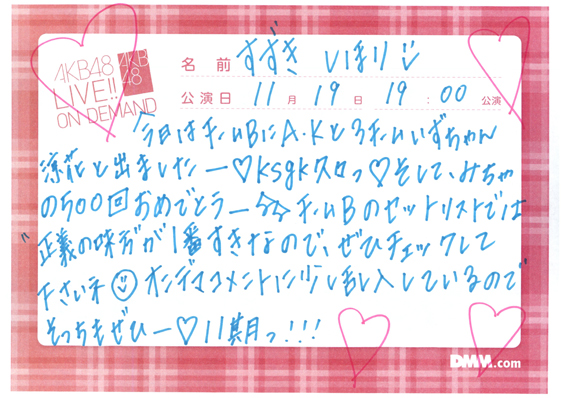 AKB48
LIVE!!
ON DEMAND
AKB
48
名前 すずき しほり
公演日 11月19日 19:00公演
今日はチームBにA・Kとろチームいずちゃん
涼花と出ましたー♡ksgkスロっ♡そして、みちゃ
の500回おめでとうー☆☆チームBのセットリストでは
"正義の味方が1番すきなので、ぜひチェックして
下さいネ☺オンデマコメントに少し乱入しているので
そっちもぜひー♡11期月っ!!!
DMM.com